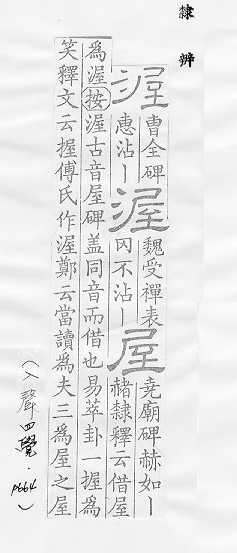 隸辨
渥
曹全碑
惠沾丨
渥
魏受禪表
罔不沾丨
屋
尭廟碑赫如丨
赭隸釋云借屋
為渥按渥古音屋碑盖同音而借也易萃卦一握為
笑釋文云握傅氏作渥鄭云當讀為夫三為屋之屋
(入聲四覺·p664)